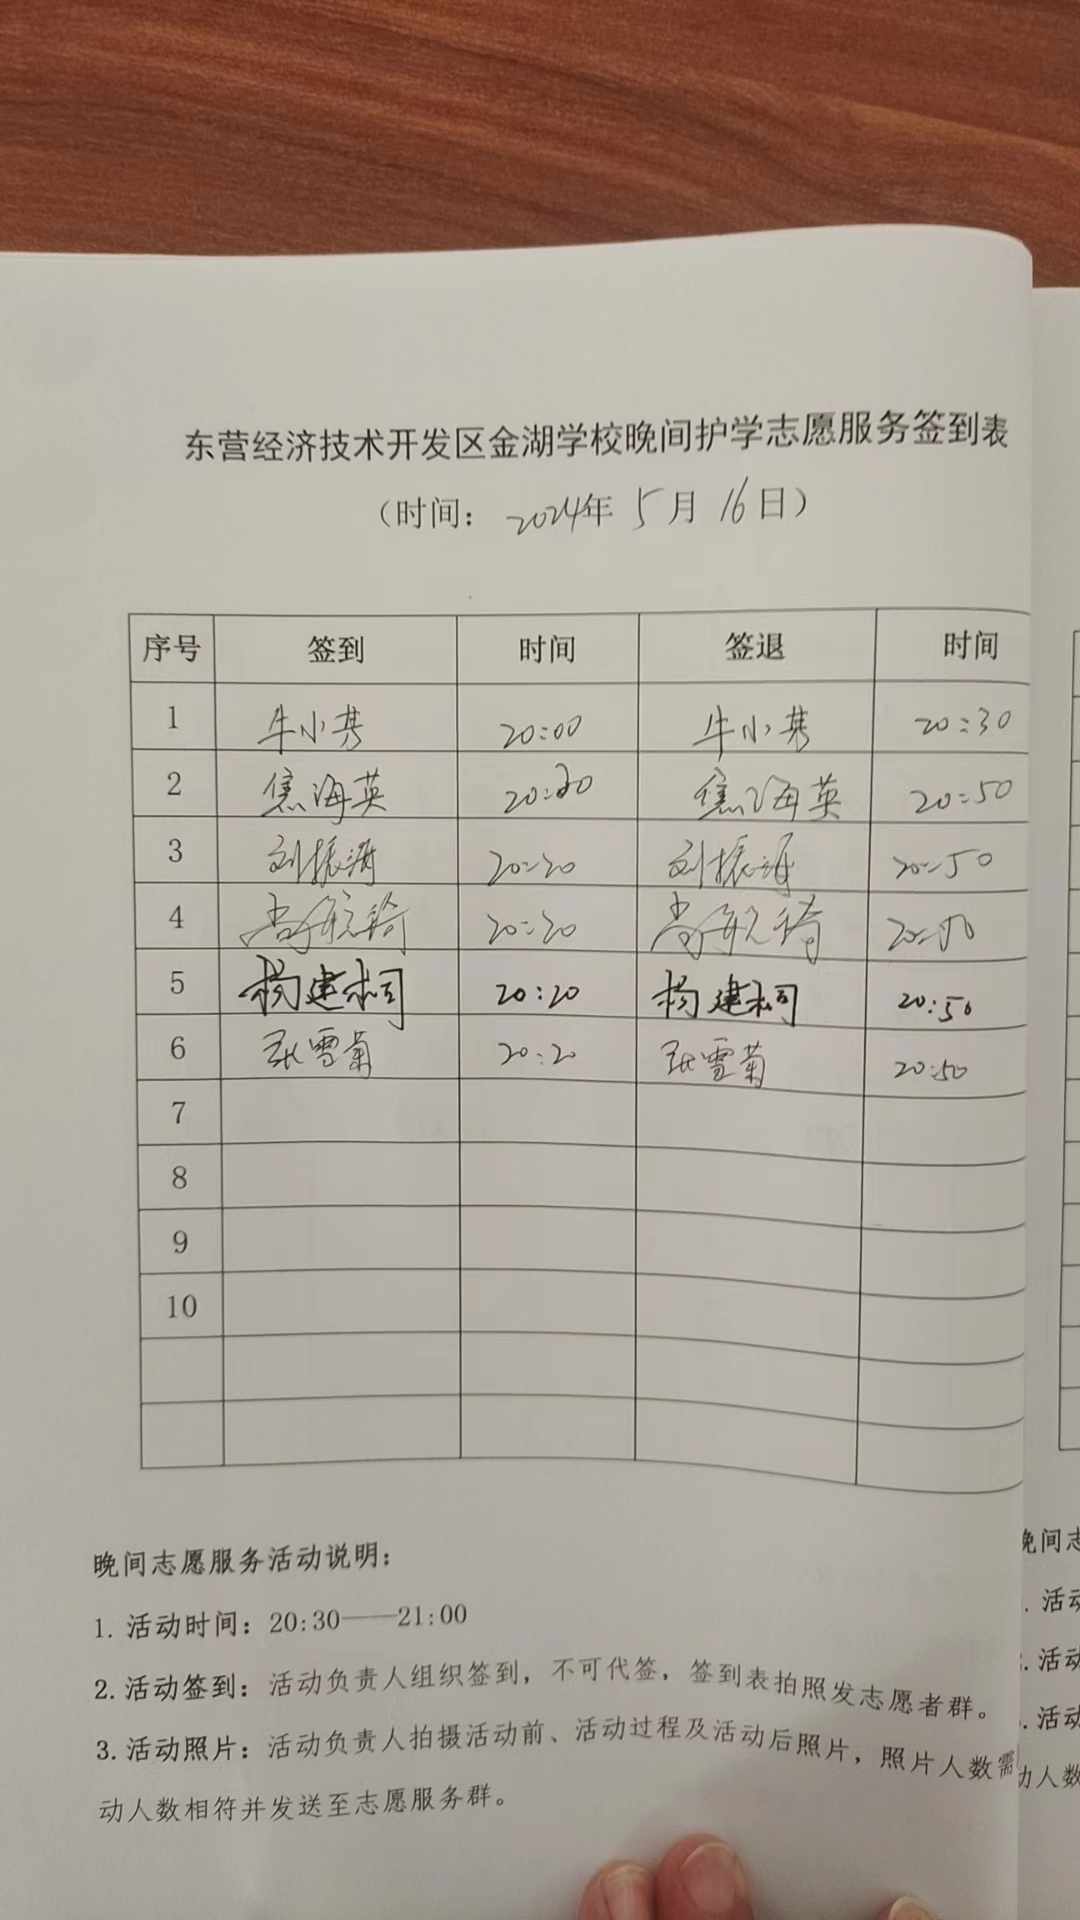 东营经济技术开发区金湖学校晚间护学志愿服务签到表
（时间：2024年 5月 16日）
序号 签到 时间 签退 时间
1 牛小 20:00 牛小 20:30
2 焦海英 20:20 焦海英 20:50
3 刘振海 20:20 刘振海 20:50
4 20:20 20:50
5 杨建桐 20:20 杨建桐 20:50
6 张雪菊 20:20 张雪菊 20:50
7
8
9
10
晚间志愿服务活动说明：
1. 活动时间：20:30——21:00
2. 活动签到：活动负责人组织签到，不可代签，签到表拍照发志愿者群。
3. 活动照片：活动负责人拍摄活动前、活动过程及活动后照片，照片人数需
动人数相符并发送至志愿服务群。
晚间志
. 活动
. 活动
. 活动
动人数